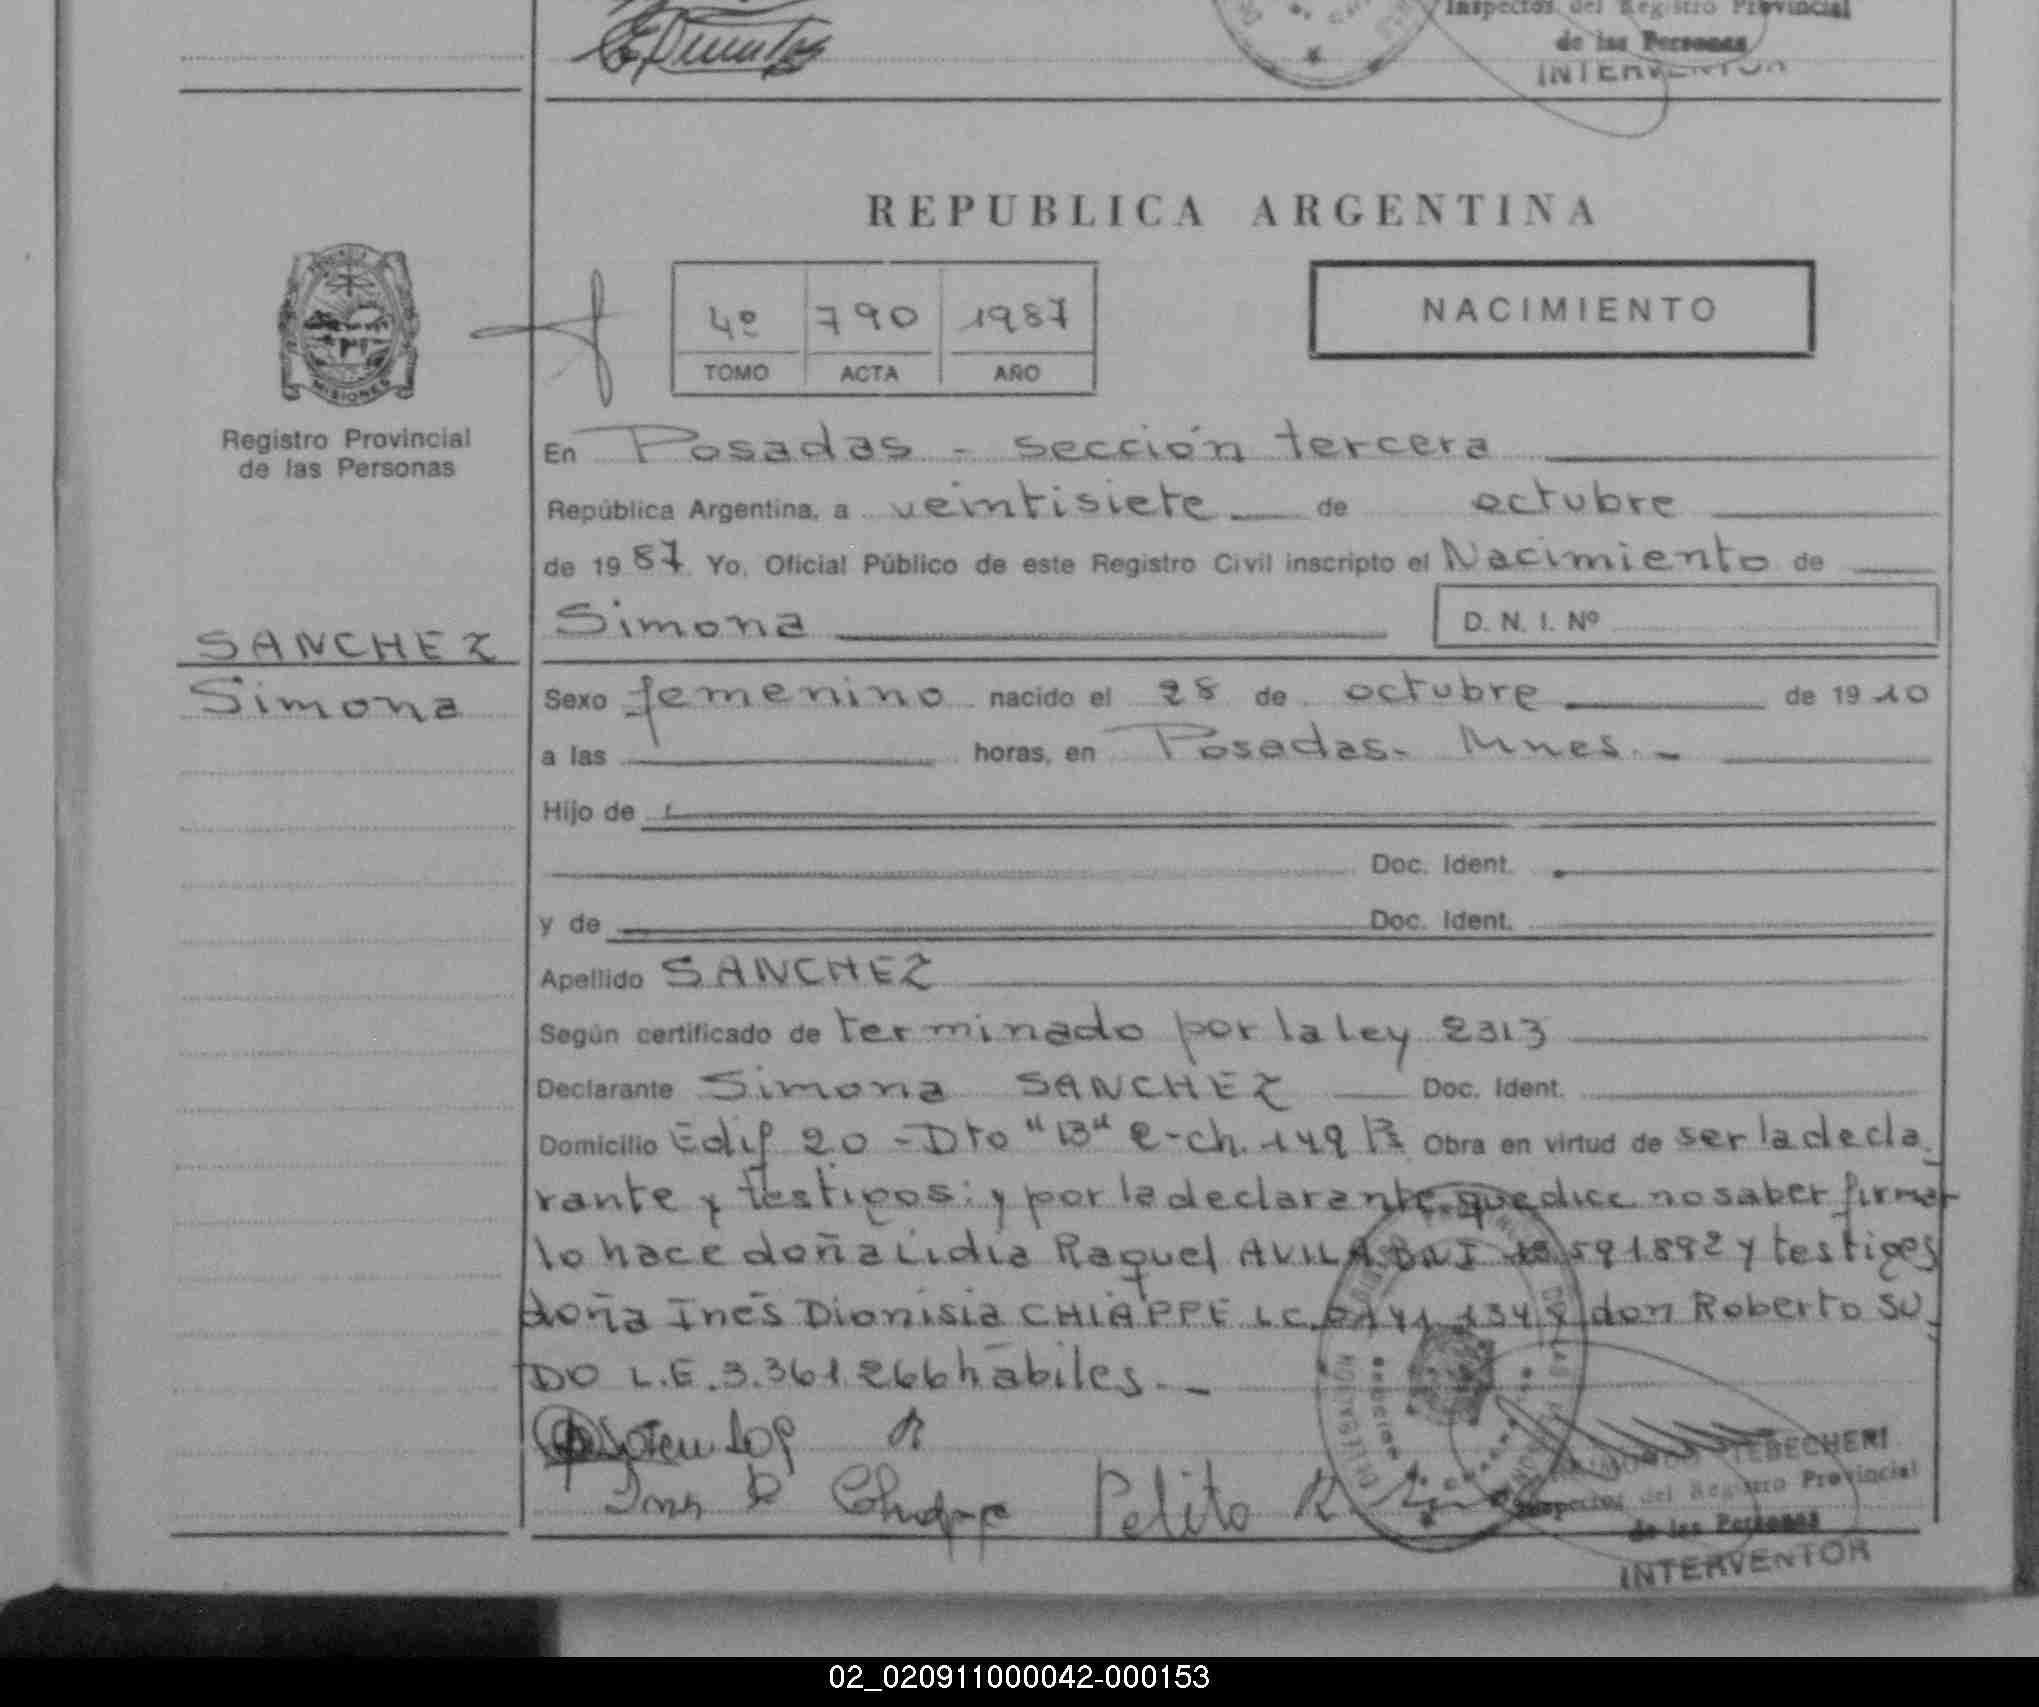 Inspector del Registro Provincial
de las Personas
INTERVENTOR
REPUBLICA ARGENTINA
MISIONES
4º 790 1987
TOMO ACTA AÑO
NACIMIENTO
Registro Provincial
de las Personas
En Posadas - sección tercera
República Argentina, a veintisiete de octubre
de 1987. Yo, Oficial Público de este Registro Civil inscripto el Nacimiento de
Simona D. N. I. Nº
SANCHEZ
Simona
Sexo femenino nacido el 28 de octubre de 1910
a las horas, en Posadas - Mnes. -
Hijo de
Doc. Ident.
y de Doc. Ident.
Apellido SANCHEZ
Según certificado de terminado por la ley 2313
Declarante Simona SANCHEZ Doc. Ident.
Domicilio Edif 20 - Dto "13" e - ch. 149 Obra en virtud de ser la decla
rante y testigos: y por la declarante que dice no saber firmar
lo hace doña Lidia Raquel AVILA DNI 591892 y testigos
doña Inés Dionisia CHIAPPE L.C. don Roberto SU
DO L.E. 3.361.266 hábiles. -
Pelito R
Inspector del Registro Provincial
de las Personas
INTERVENTOR
02_020911000042-000153